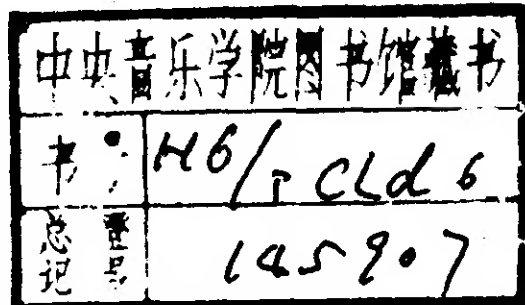 中央音乐学院图书馆藏书
书号 H6/TCLd6
总登记号 145907